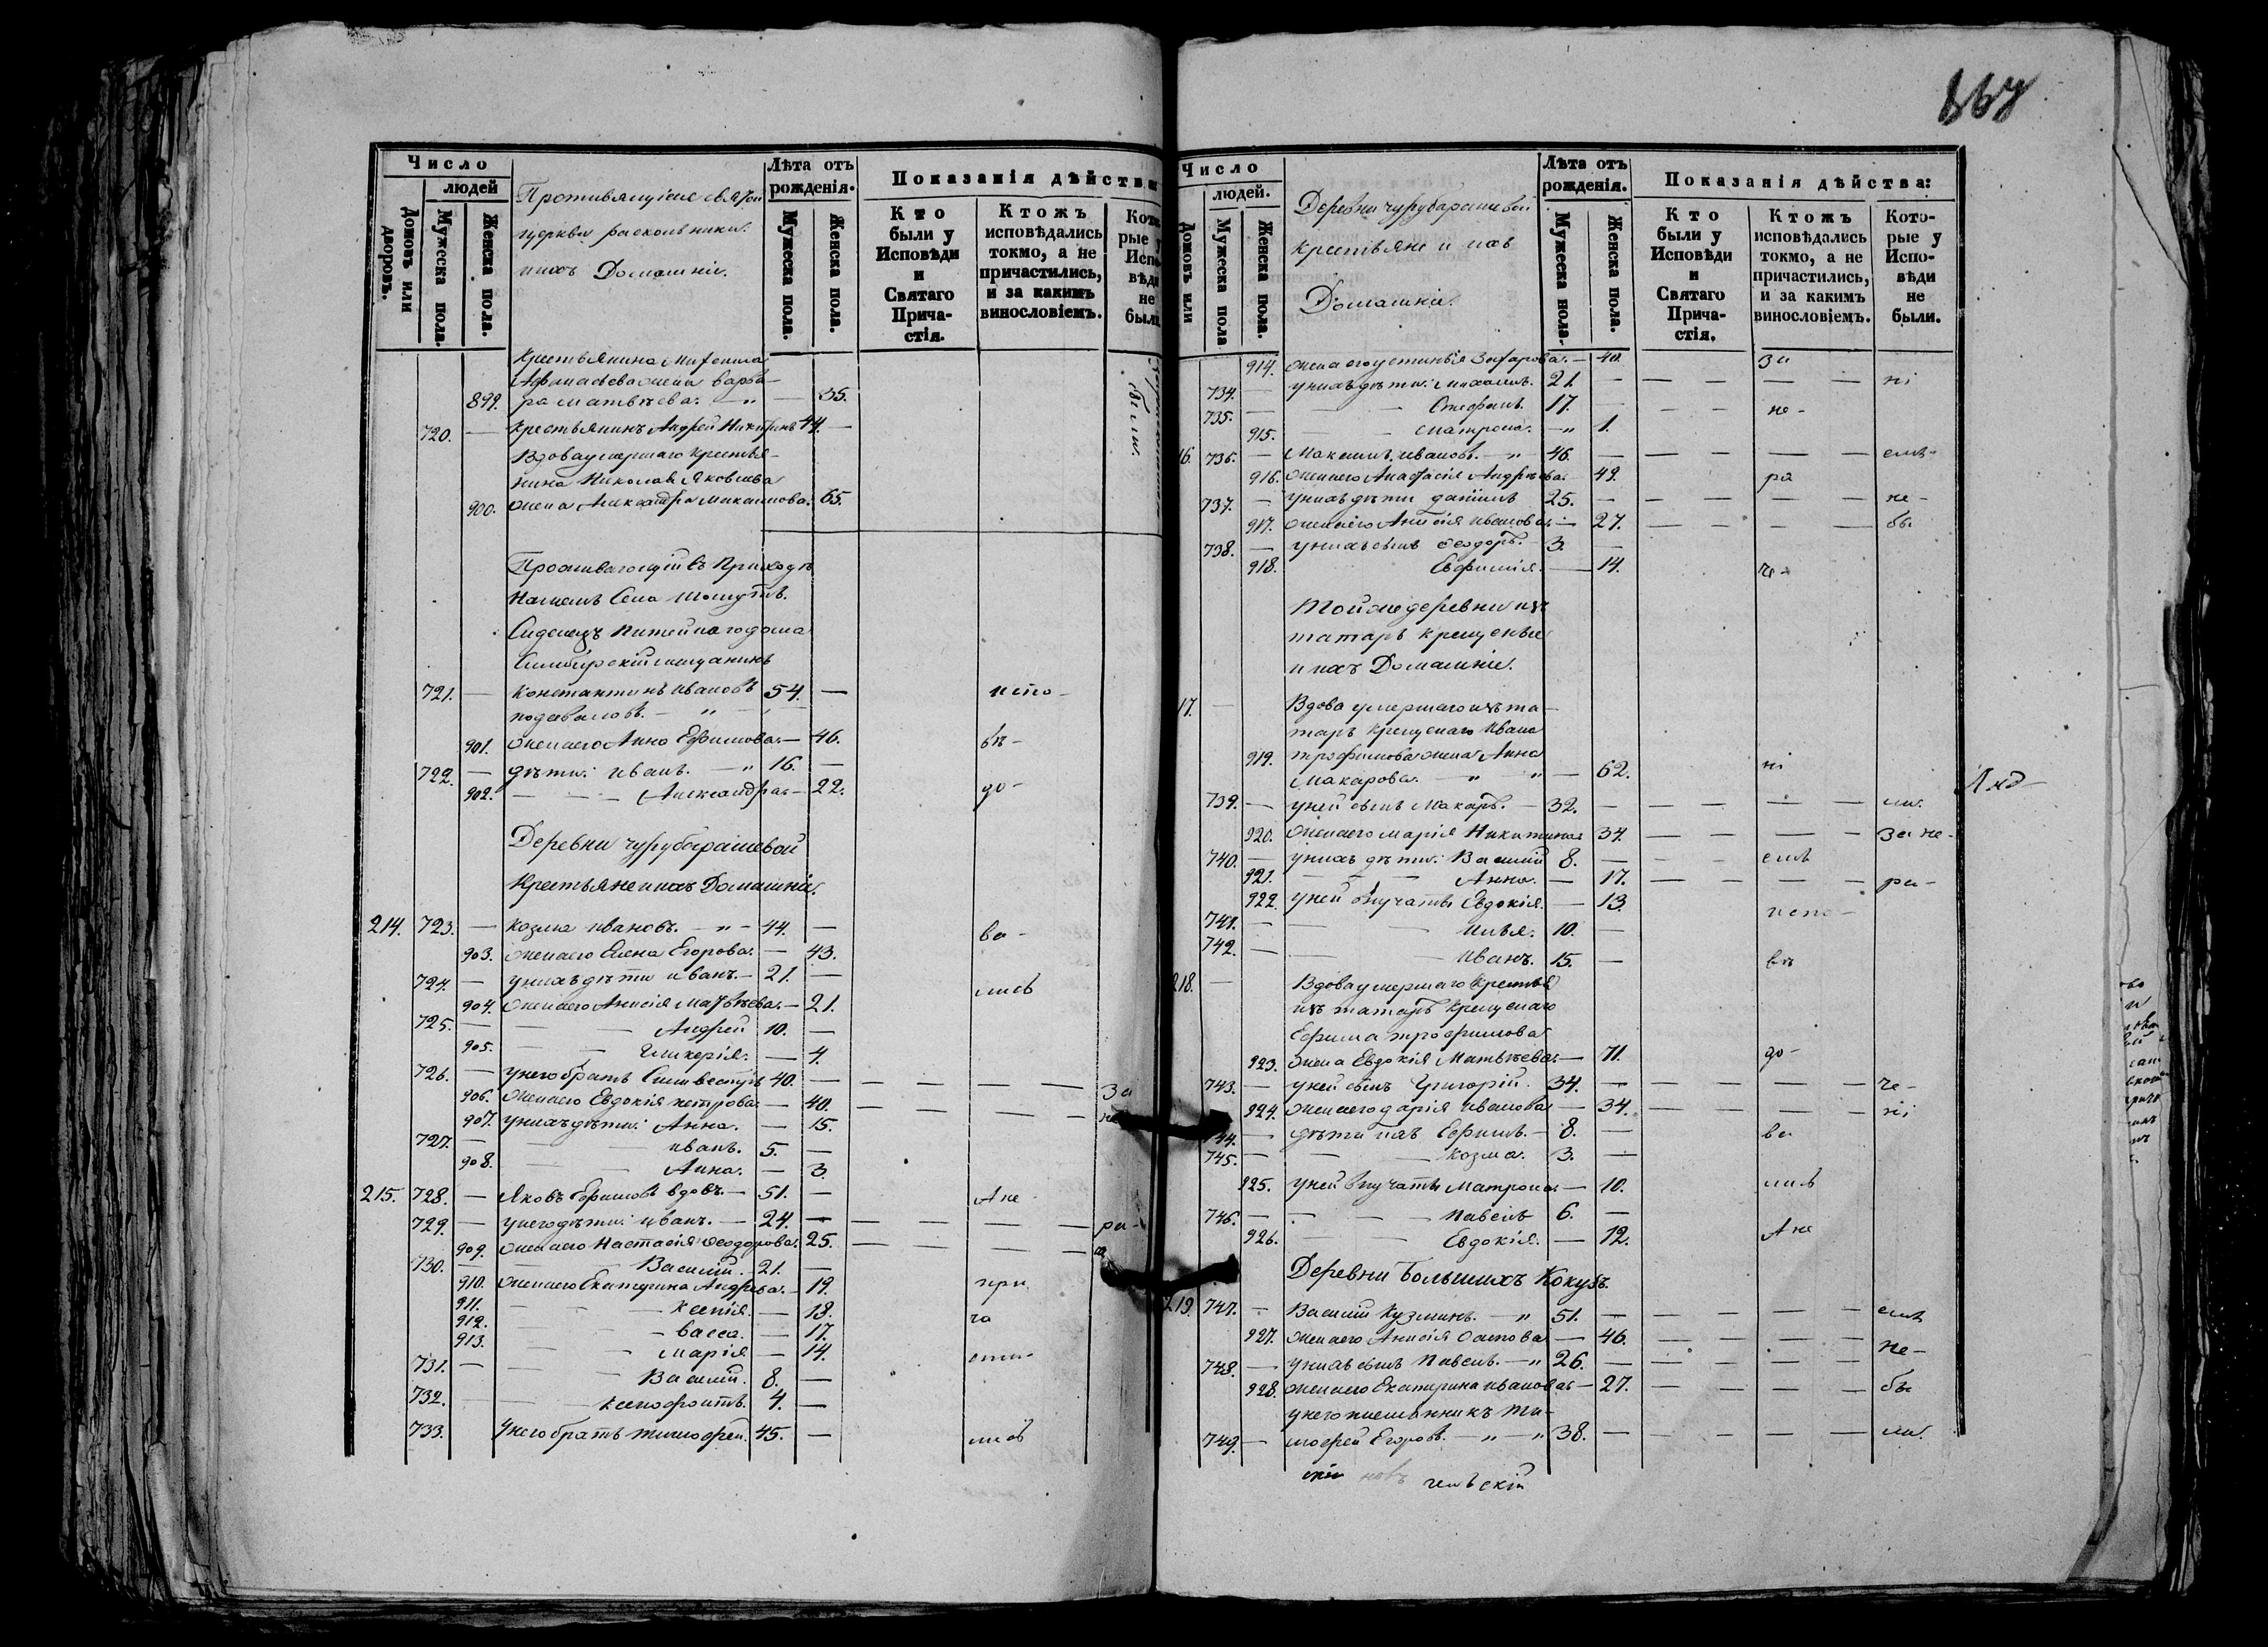 867
Число
людей
Домовъ или дворовъ.
Мужеска пола.
Женска пола.
Противящіеся святой
церкви раскольники
и ихъ Домашніе.
Лѣта отъ рожденія.
Мужеска пола.
Женска пола.
Показанія дѣйства
Кто были у Исповѣди и Святаго Прича-стія.
Ктожъ исповѣдались токмо, а не причастились, и за какимъ винословіемъ.
Кото-рые у Испо-вѣди не были.
Крестьянина
жена Варва-
899. ра Матвѣева. — „ — 35.
720. — Крестьянинъ Андрей Никифоровъ 44. —
Вдова умершаго крестья-
нина Николая Яковлева
900. жена Александра Максимова. 65.
Проживающій въ Приходѣ
Нашемъ Села
Сиделецъ Питейнаго дома
Симбирскій мещанинъ
721. — Константинъ Ивановъ 54. — испо-
подавловъ. — „
901. жена его Анна Ефимова. — 46. вѣ-
722. — дѣти: Иванъ. — „ 16. —
902. — — — Александра. — 22. до-
Деревни Чурубарашевой
Крестьяне и ихъ Домашніе.
214. 723. — Козма Ивановъ. — „ — 44. — ва-
903. жена его Елена Егорова. — 43.
724. — у нихъ дѣти Иванъ. — 21. — лись
904. жена его Анисія Матвѣева. — 21.
725. — — — Андрей 10. —
905. — — Гликерія. — 4.
726. — у него братъ Сильвестръ 40. — — — — — — за
906. жена его Евдокія Петрова. — 40. — — — — — не
907. у нихъ дѣти: Анна. — 15.
727. — — — Иванъ. 5. —
908. — — Анна. — 3.
215. 728. — Яковъ Ефимовъ вдовъ. — 51. — А не
729. — у него дѣти: Иванъ. — 24. — — — — — — ра-
909. жена его Настасія Ѳеодорова. 25. — — — — —
730. — — — Василій. 21. —
910. жена его Екатерина Андреева. — 19. при
911. — — — Ксенія. — 18.
912. — Васса. — 17. ча
913. — — Марія. — 14.
731. — — — Василій. 8. — сти-
732. — — — Ксенофонтъ. 4. —
733. У него братъ Тимофей. 45. — лись
Число
людей.
Домовъ или
Мужеска пола
Женска пола.
Деревни Чурубарашевой
крестьяне и ихъ
Домашніе.
Лѣта отъ рожденія.
Мужеска пола.
Женска пола.
Показанія дѣйства:
Кто были у Исповѣди и Святаго Прича-стія.
Ктожъ исповѣдались токмо, а не причастились, и за какимъ винословіемъ.
Кото-рые у Испо-вѣди не были.
914. жена его Устинья Захарова. — 40. за
734. — у нихъ дѣти: Михаилъ. 21. — — — — — — ні
735. — — — Стефанъ. 17. — не-
915. — — Матрона. — „ 1.
16. 736. — Максимъ Ивановъ. — „ 46. — — — — — — емъ-
916. жена его Анастасія Андрѣева. — 49. ра
737. — у нихъ дѣти Даніилъ 25. — — — — — — не-
917. жена его Анисія Иванова. — 27. — — — — — бы
738. — у нихъ сынъ Ѳеодоръ. — 3. —
918. Евфимія. — 14. че-
Той же деревни изъ
татаръ крещеные
и ихъ Домашніе.
17. — Вдова умершаго изъ та-
таръ крещенаго Ивана
919. Трофимова жена Анна
Макарова. — „ — „ — 62. ні
739. — у ней сынъ Макаръ. — 32. — — — — — — ли.
920. жена его Марія Никитина 34. — — — — — за не-
740. — у нихъ дѣти: Василій 8. — емъ
921. — — — Анна. — 17. — — — — — ра-
922. у ней внучаты Евдокія. — 13.
741. — — — Илья. 10. — испо-
742. — — — Иванъ. 15. — вѣ
218. — Вдова умершаго Крестья
изъ татаръ крещенаго
Ефима Трофимова
923. жена Евдокія Матвѣева. — 71. до-
743. — у ней сынъ Григорій. 34. — — — — — — че-
924. жена его Дарія Иванова — 34. — — — — — ні
744. — дѣти ихъ Ефимъ. — 8. — ва
745. — — — Козма. 3. —
925. у ней внучаты Матрона. — 10. лись
746. — — — Павелъ 6. —
926. — — Евдокія. — 12. А не
Деревни Большихъ Кокузъ.
219 747. — Василій Кузминъ. — „ 51. — — — — — — емъ
927. жена его Анисія Осипова — 46. — — — — — не-
748. — у нихъ сынъ Павелъ. — „ 26. — — — — — —
928. жена его Екатерина Иванова — 27. — — — — — бы
у него племянникъ Ти-
749. — мофей Егоровъ. — „ — „ 38. — — — — — — ли.